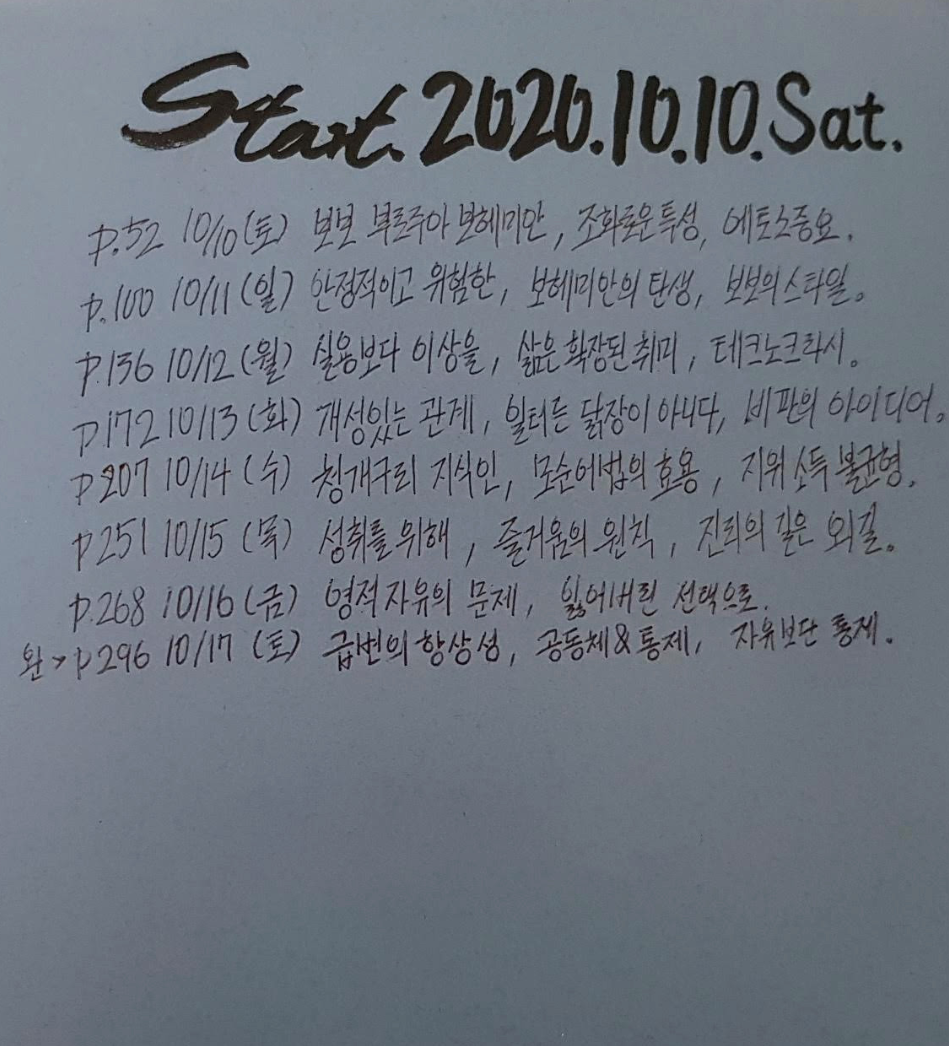 Start. 2020.10.10. Sat.
p.52 10/10 (토) 보보 부르주아 보헤미안, 조화로운 특성, 에토스중요.
p.100 10/11 (일) 안정적이고 위험한, 보헤미안의 탄생, 보보의 스타일.
p.136 10/12 (월) 실용보다 이상을, 삶은 확장된 취미, 테크노크라시.
p172 10/13 (화) 개성있는 관계, 일터는 닭장이 아니다, 비판의 아이디어.
p207 10/14 (수) 청개구리 지식인, 모순어법의 효용, 지위 소득 불균형.
p251 10/15 (목) 성취를 위해, 즐거움의 원칙, 진리의 길은 외길.
p.268 10/16 (금) 영적 자유의 문제, 잃어버린 선택으로.
완 > p296 10/17 (토) 급변의 항상성, 공동체&통제, 자유보단 통제.